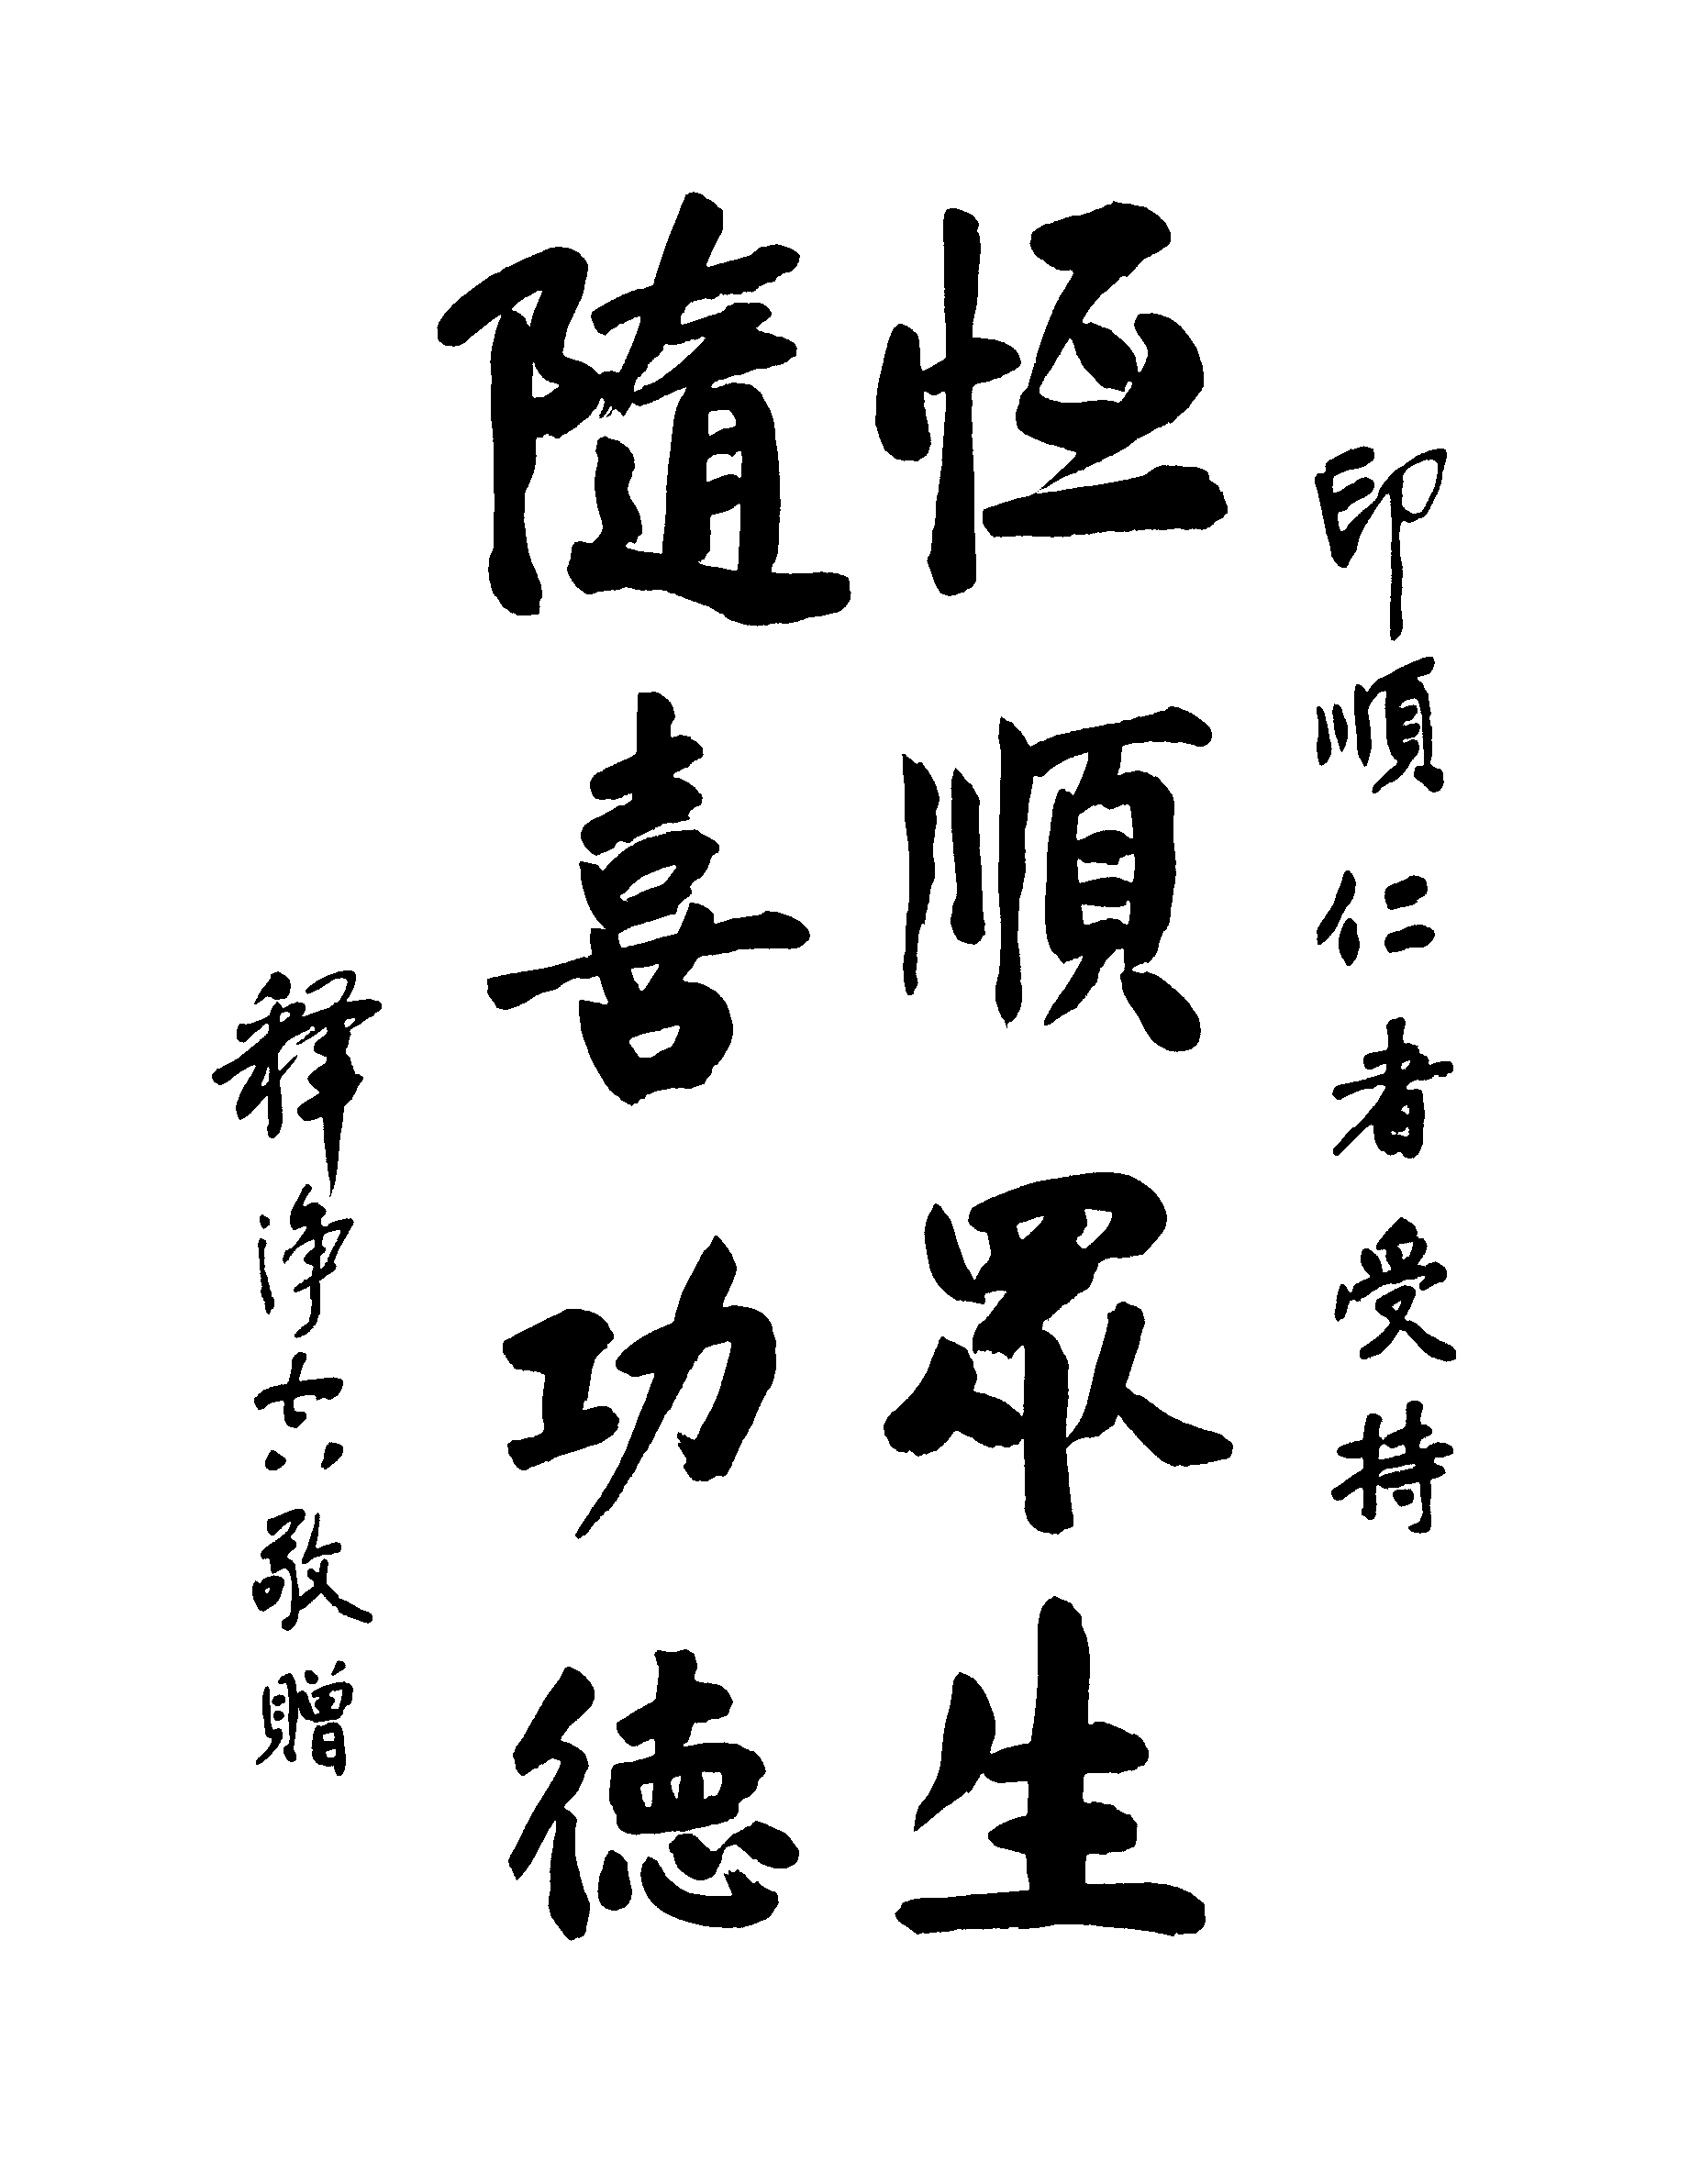 印順仁者受持
恆順眾生
隨喜功德
释净空敬贈